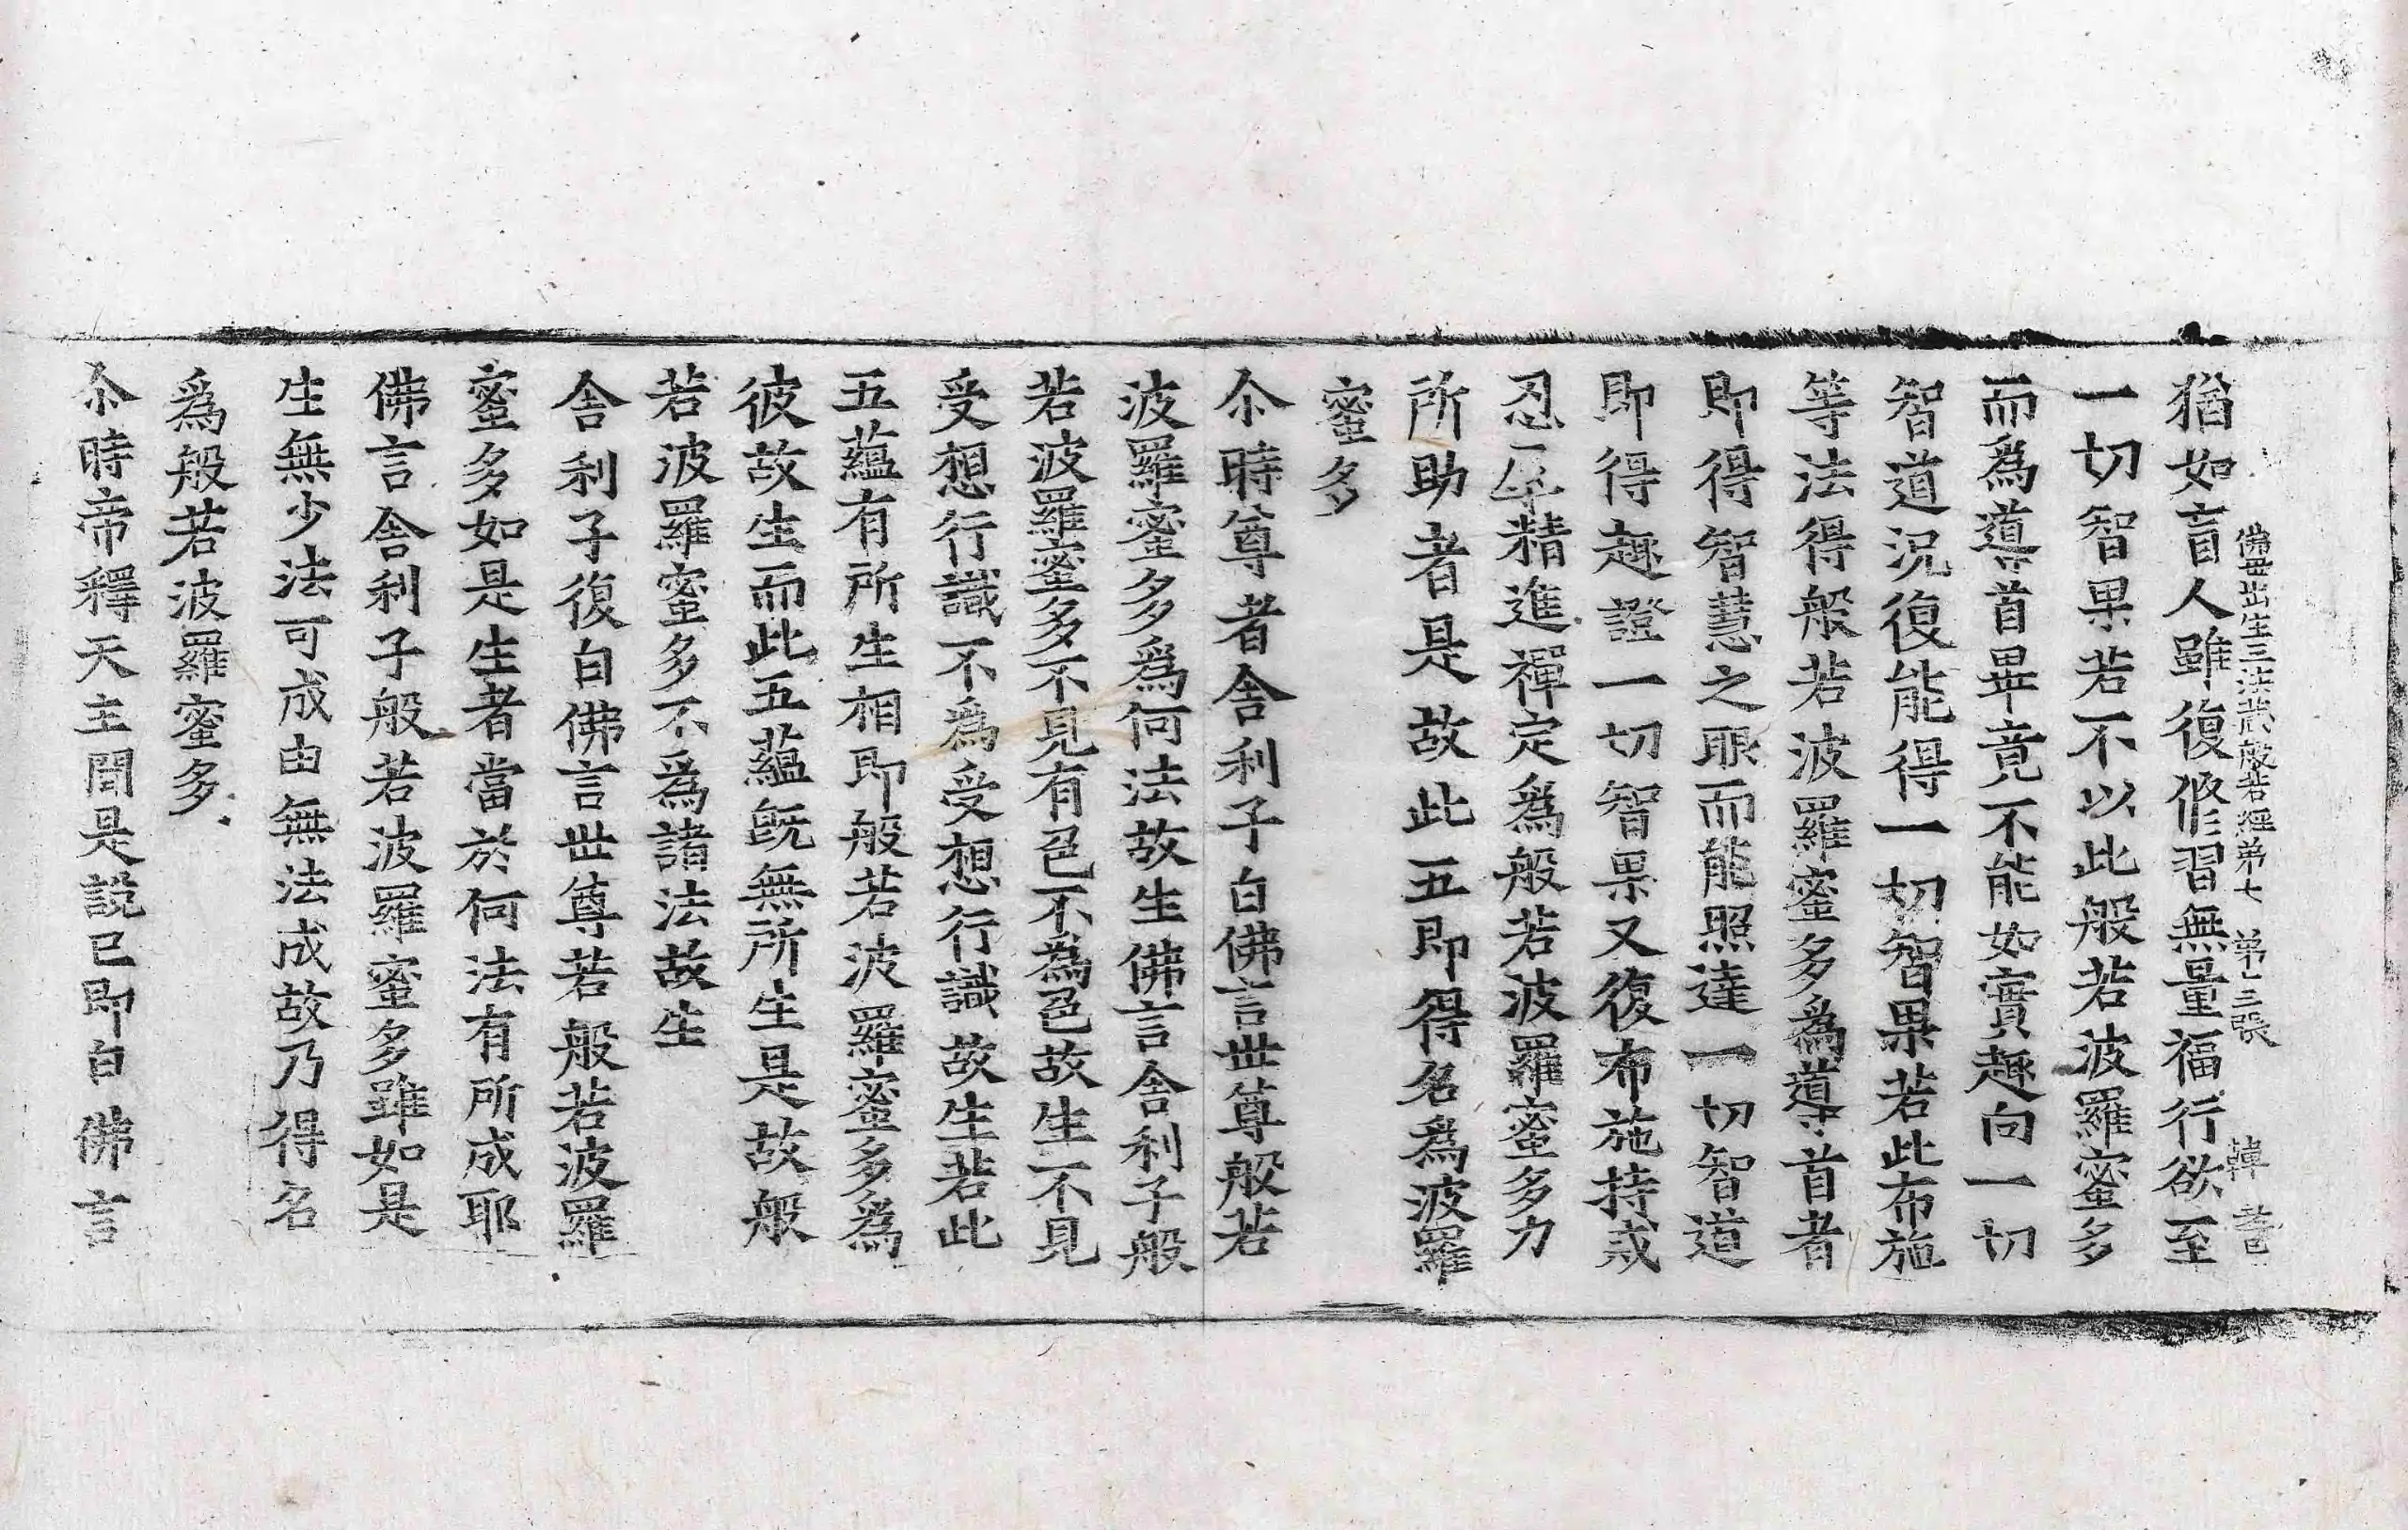 佛毋出生三法藏般若經第七 第十三張 韓
猶如盲人雖復修習無量福行欲至
一切智果若不以此般若波羅蜜多
而爲導首畢竟不能如實趣向一切
智道況復能得一切智果若此布施
等法得般若波羅蜜多爲導首者
即得智慧之眼而能照達一切智道
即得趣證一切智果又復布施持戒
忍辱精進禪定爲般若波羅蜜多力
所助者是故此五即得名爲波羅
蜜多
尒時尊者舍利子白佛言世尊般若
波羅蜜多爲何法故生佛言舍利子般
若波羅蜜多不見有色不爲色故生不見
受想行識不爲受想行識故生若此
五蘊有所生相即般若波羅蜜多爲
彼故生而此五蘊旣無所生是故般
若波羅蜜多不爲諸法故生
舍利子復白佛言世尊若般若波羅
蜜多如是生者當於何法有所成耶
佛言舍利子般若波羅蜜多雖如是
生無少法可成由無法成故乃得名
爲般若波羅蜜多
尒時帝釋天主聞是說已即白佛言